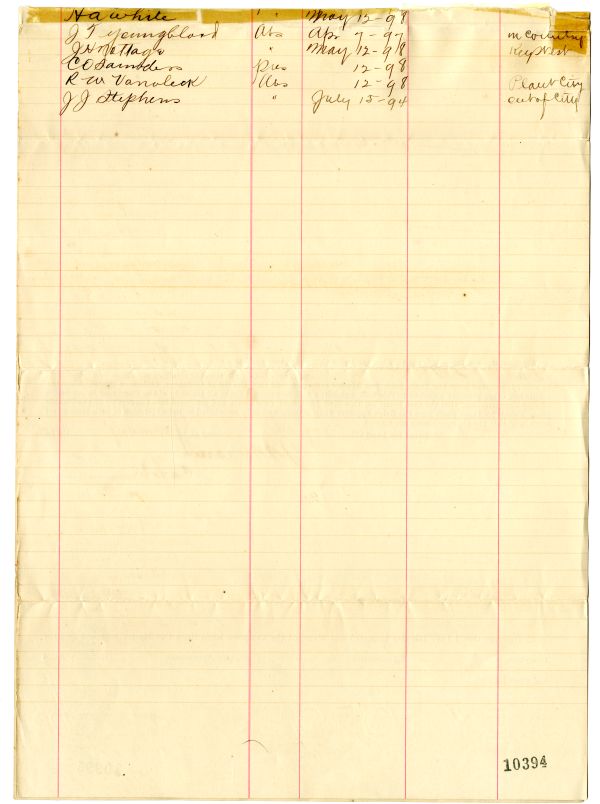 H A White " May 12-98
J T Youngblood Abs Apr 7-97 in Country
J H Nottage " May 12-98 Key West
C O Saunders pres 12-98
R W Vanvleck Abs 12-98 Plant City
J J Stephens " July 15-94 out of City
10394